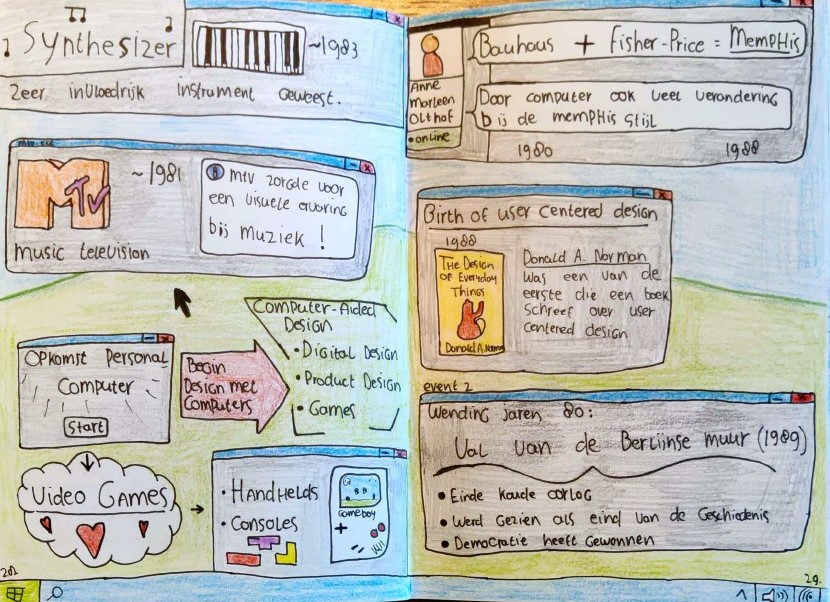 Synthesizer
~1983
Zeer invloedrijk instrument geweest.
mtv.exe
MTV
~1981
music television
mtv zorgde voor
een visuele ervaring
bij muziek!
Opkomst Personal
Computer
Start
Begin
Design met
Computers
Computer-Aided
Design
• Digital Design
• Product Design
• Games
Video Games
• Handhelds
• Consoles
Gameboy
Bauhaus + Fisher-Price = MEMPHIS
Anne
Marleen
Olthof
• online
Door computer ook veel verandering
bij de MEMPHIS stijl
1980 1988
Birth of user centered design
1988
The Design
of Everyday
Things
Donald A. Norman
Donald A. Norman
was een van de
eerste die een boek
schreef over user
centered design
event 2
Wending jaren 80:
Val van de Berlijnse muur (1989)
• Einde koude oorlog
• Werd gezien als eind van de Geschiedenis
• Democratie heeft Gewonnen